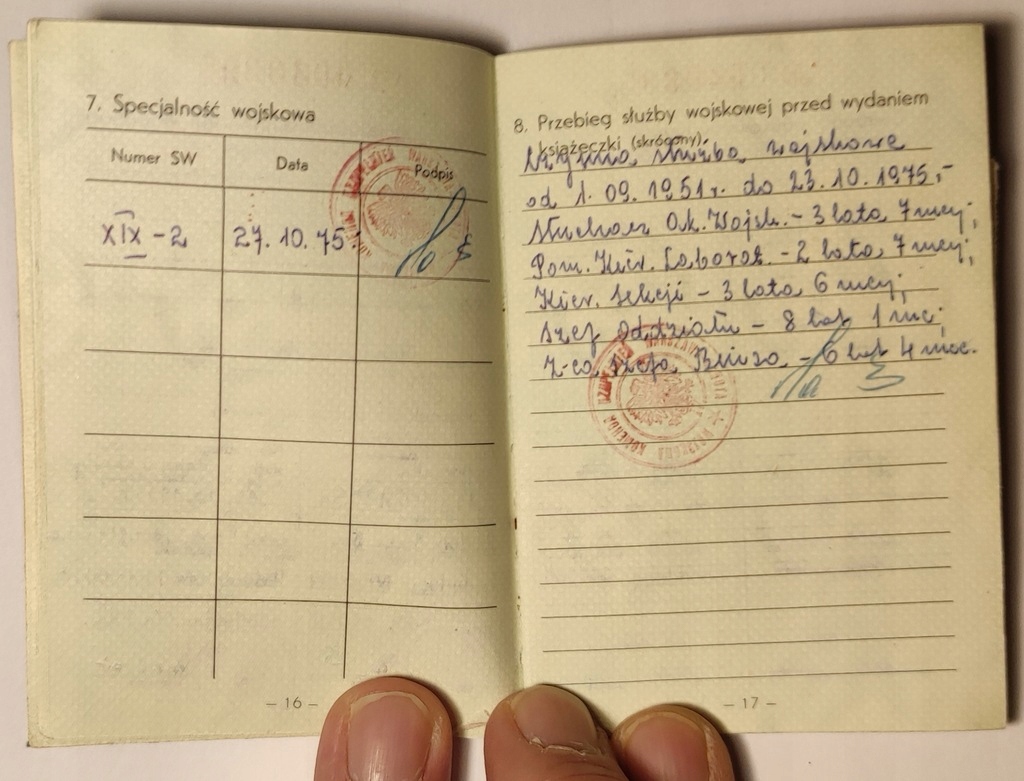 7. Specjalność wojskowa
Numer SW
Data
Podpis
XIX-2
27.10.75
- 16 -
8. Przebieg służby wojskowej przed wydaniem
książeczki (skrócony).
służba wojskowa
od 1.09.1951r. do 23.10.1975,-
Słuchacz Ak. Wojsk. - 3 lata 7 mcy;
Pom. Kier. Laborat. - 2 lata 7 mcy;
Kier. Sekcji - 3 lata 6 mcy;
Szef Oddziału - 8 lat 1 mc;
Z-ca Szefa Biura - 6 lat 4 mce.
WOJSKOWA KOMENDA UZUPEŁNIEŃ WARSZAWA
- 17 -